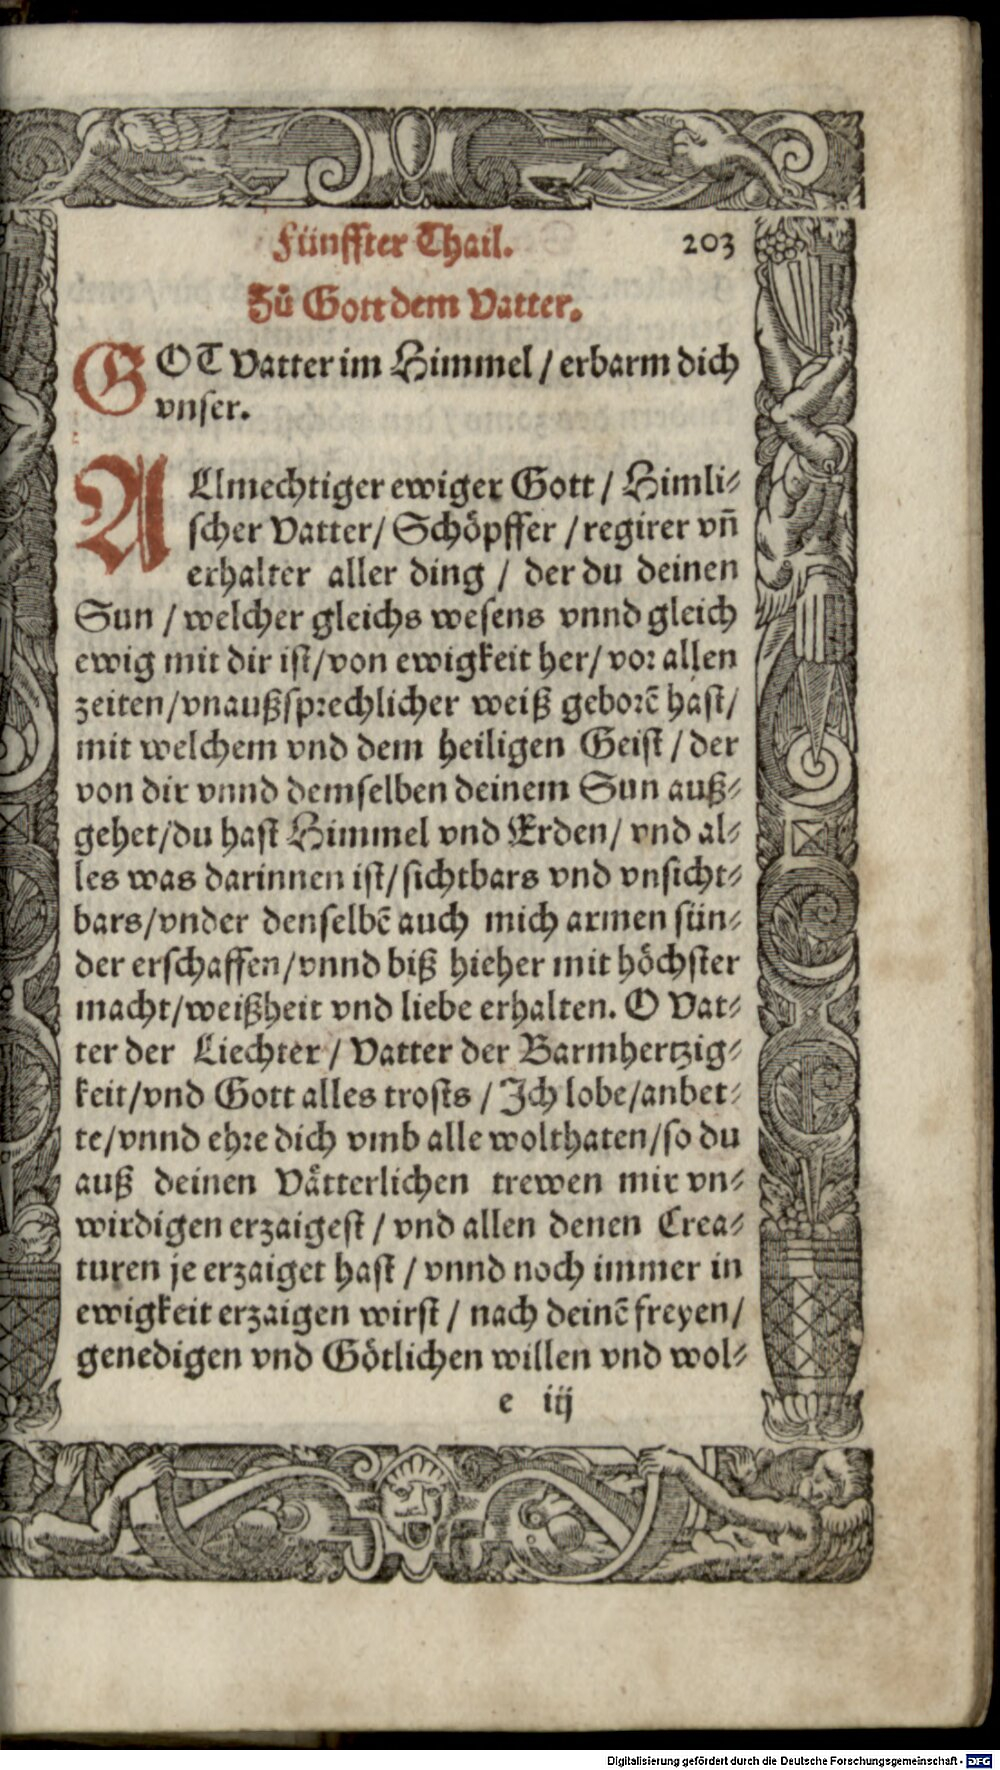 Fünffter Thail. 203
Zů Gott dem Vatter.
GOT Vatter im Himmel / erbarm dich
vnser.
ALlmechtiger ewiger Gott / Himli⸗
scher Vatter / Schöpffer / regirer vn̄
erhalter aller ding / der du deinen
Sun / welcher gleichs wesens vnnd gleich
ewig mit dir ist / von ewigkeit her / vor allen
zeiten / vnaußsprechlicher weiß geborē hast /
mit welchem vnd dem heiligen Geist / der
von dir vnnd demselben deinem Sun auß⸗
gehet / du hast Himmel vnd Erden / vnd al⸗
les was darinnen ist / sichtbars vnd vnsicht⸗
bars / vnder denselbē auch mich armen sün⸗
der erschaffen / vnnd biß hieher mit höchster
macht / weißheit vnd liebe erhalten. O Vat⸗
ter der Liechter / Vatter der Barmhertzig⸗
keit / vnd Gott alles trosts / Ich lobe / anbet⸗
te / vnnd ehre dich vmb alle wolthaten / so du
auß deinen Vätterlichen trewen mir vn⸗
wirdigen erzaigest / vnd allen denen Crea⸗
turen je erzaiget hast / vnnd noch immer in
ewigkeit erzaigen wirst / nach deinē freyen /
genedigen vnd Götlichen willen vnd wol⸗
e iij
Digitalisierung gefördert durch die Deutsche Forschungsgemeinschaft - DFG